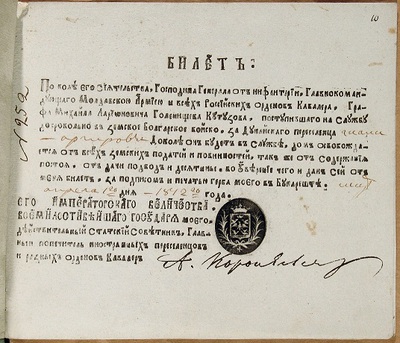 10
№ 252
БИЛЕТЪ:
По волѣ его Сіятельства, Господина Генерала отъ инфантеріи, Главнокоман-
дующаго Молдавскою Арміею и всѣхъ Россійскихъ орденовъ Кавалера, Гра-
фа Михаила Ларіоновича Голенищева Кутузова, поступившаго на службу
добровольно въ земское Болгарское войско, за Дунайскаго переселенца
Доколѣ онъ будетъ въ Службѣ, домъ освобожда-
ется отъ всѣхъ земскихъ податей и повинностей, такъ же отъ Содержанія
постоя, отъ дачи подводъ и десятины. Во увѣреніе чего и данъ сей отъ
меня билетъ, за подписомъ и печатью герба моего въ Букарештѣ:
апреля 1го дня - 1812го года.
его ИМПЕРАТОРСКАГО ВЕЛИЧЕСТВА
ВСЕМИЛОСТИВѢЙШАГО ГОСУДАРЯ моего,
дѣйствительный Статскій Совѣтникъ, Глав-
ный попечитель иностранныхъ переселенцовъ
и разныхъ орденовъ Кавалеръ
А. Коронелли